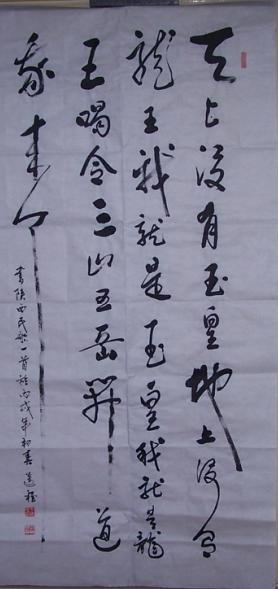 天上没有玉皇地上没有
龙王我就是玉皇我就是龙
王喝令三山五岳开道
我来了
书陕西民歌一首于丙戌年初春